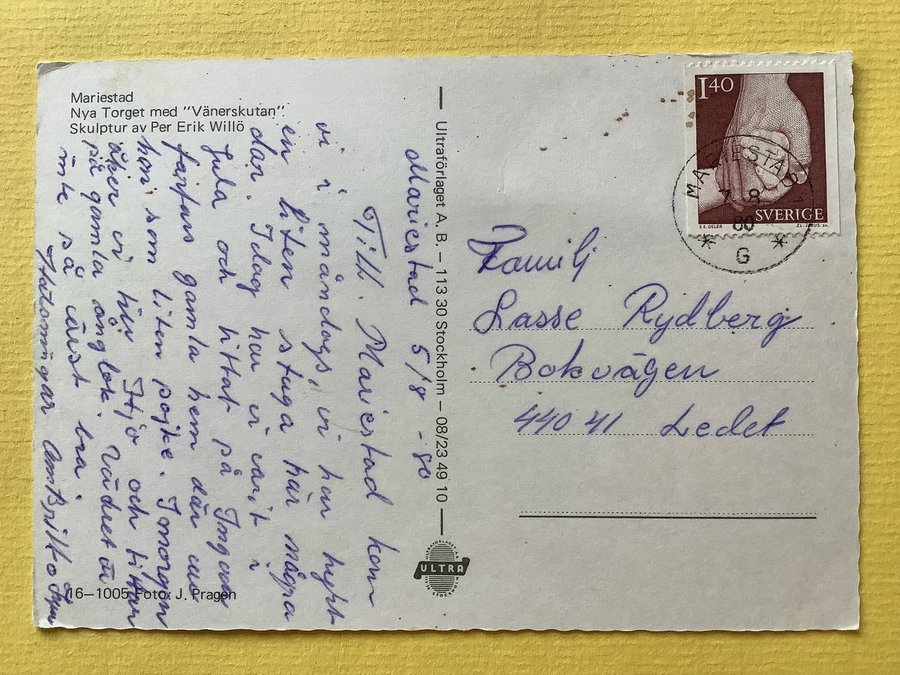 Mariestad
Nya Torget med "Vänerskutan".
Skulptur av Per Erik Willö
Mariestad 5/8 -80
Till Mariestad kom
vi i måndags, vi har hyrt
en liten stuga här några
dar. Idag har vi varit i
Jula och tittat på
farfars gamla hem där
han som liten pojke. I morgon
åker vi till Hjo och tittar
på gamla ånglok. Vädret är
inte så värst bra.
AnnBritt o
116-1005 Foto: J. Pragen
Ultraförlaget A. B. – 113 30 Stockholm – 08/23 49 10
ULTRA
1.40
SVERIGE
MARIESTAD
8.
80
G
Familj
Lasse Rydberg
Bokvägen
440 41 Ledet